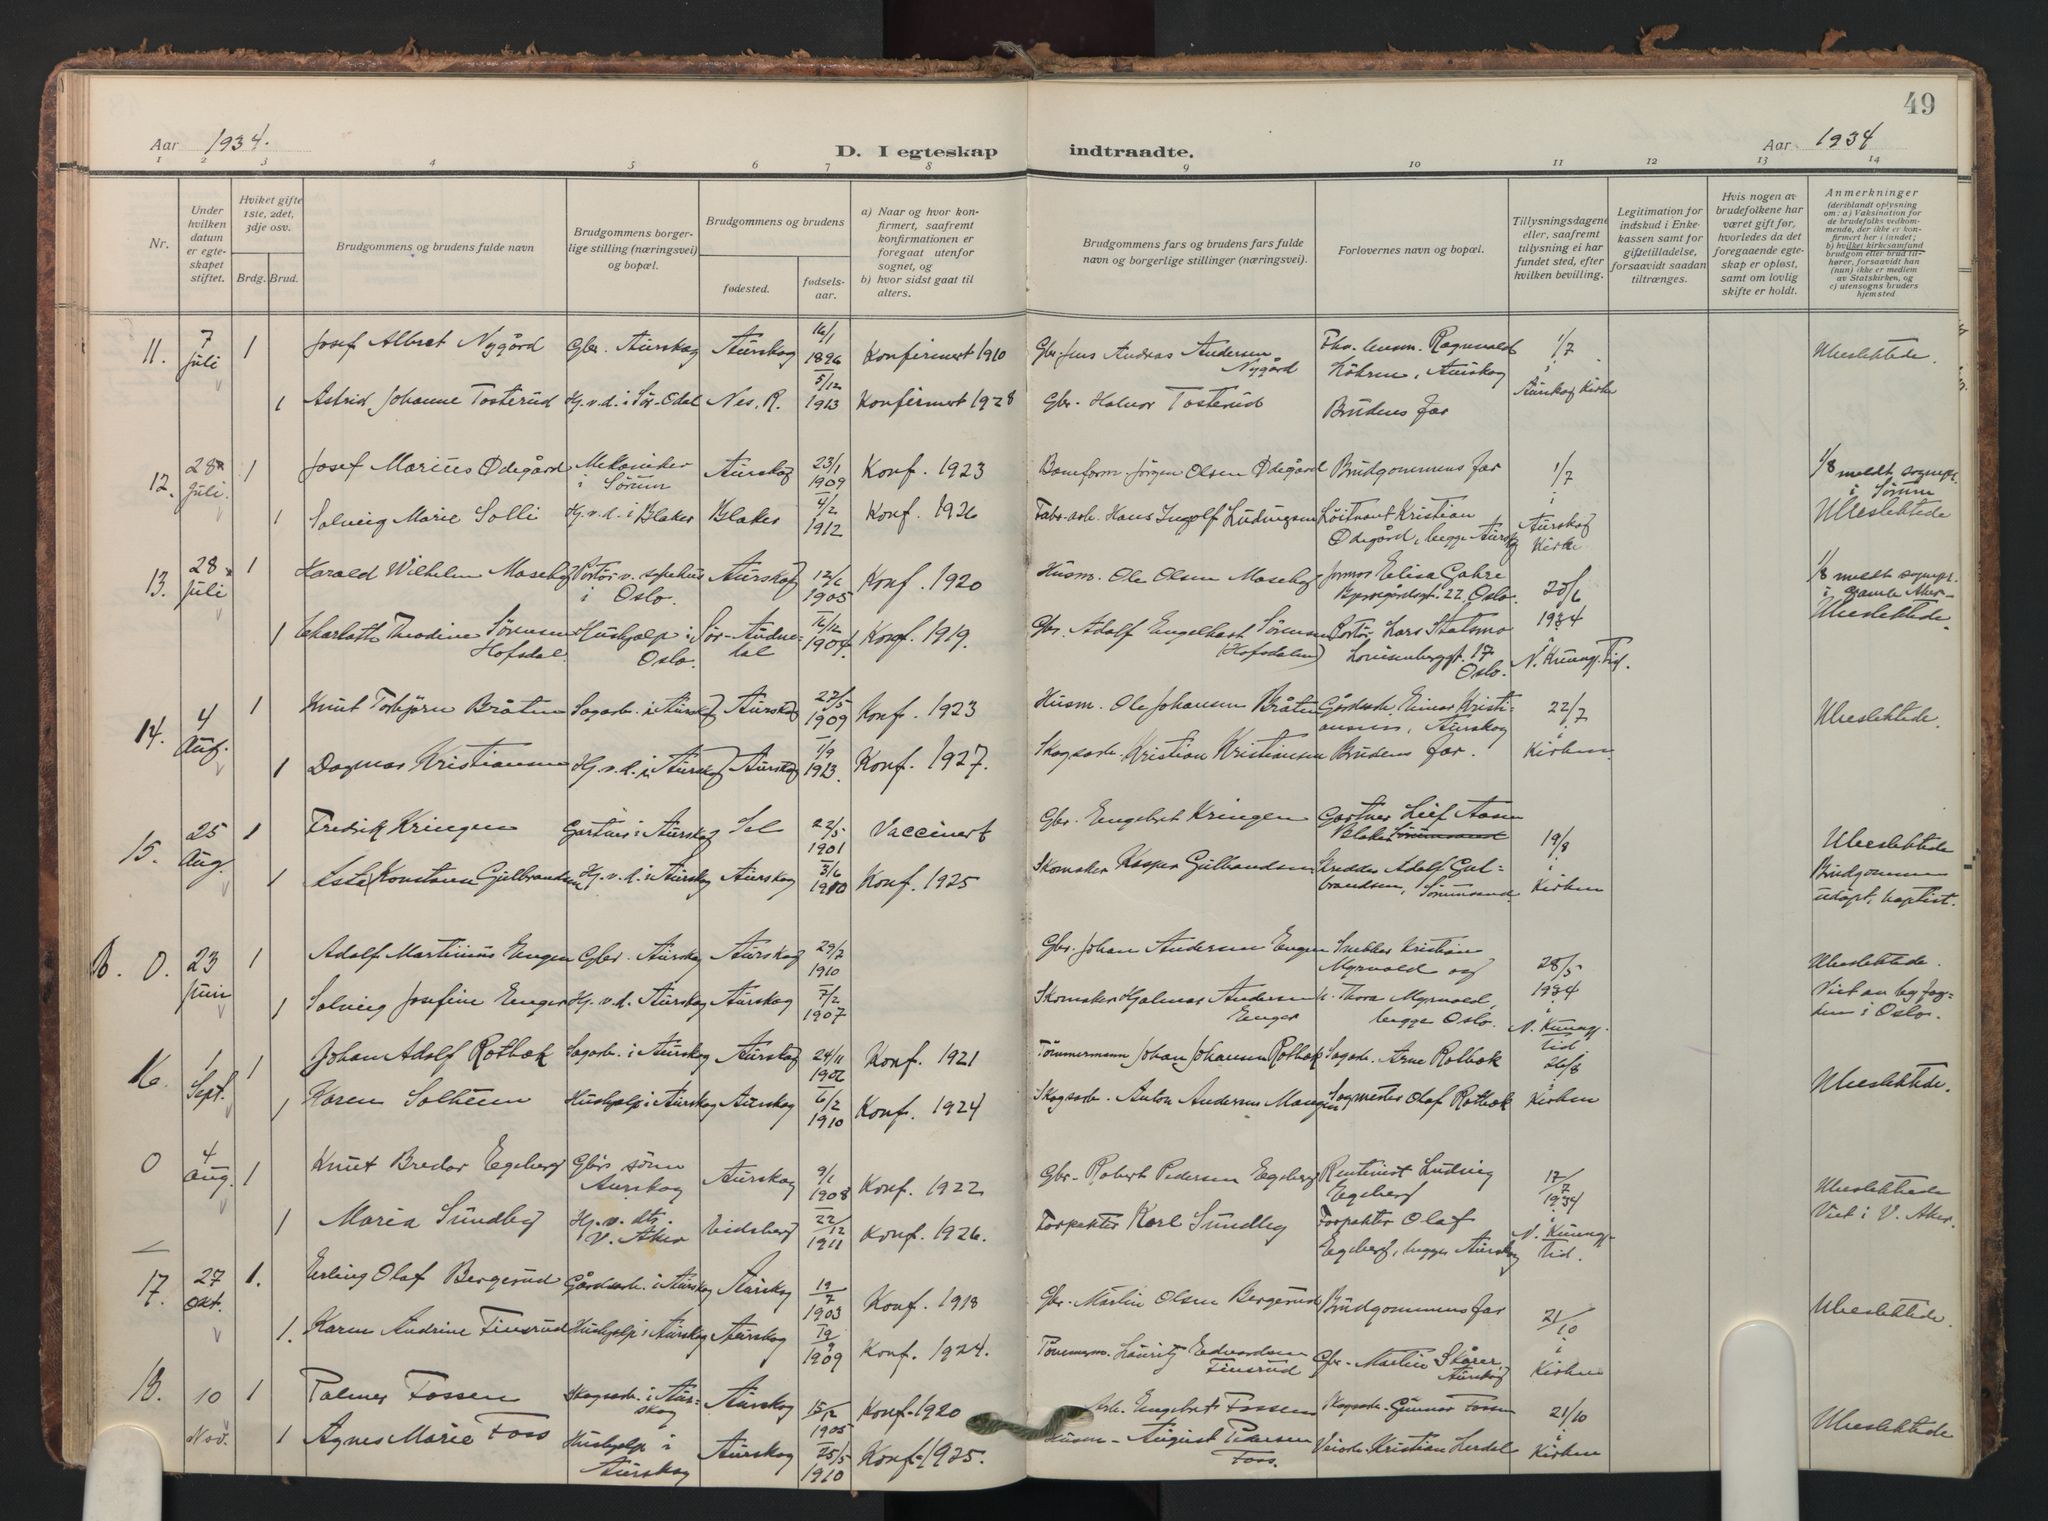 49
Aar 1934.
D. I egteskap indtraadte.
Aar 1934
1 2 3 4 5 6 7 8 9 10 11 12 13 14
Nr.
Under hvilken datum er egteskapet stiftet.
Hviket gifte 1ste, 2det, 3dje osv.
Brdg. Brud.
Brudgommens og brudens fulde navn
Brudgommens borgerlige stilling (næringsvei) og bopæl.
Brudgommens og brudens
fødested.
fødselsaar.
a) Naar og hvor konfirmert, saafremt konfirmationen er foregaat utenfor sognet, og
b) hvor sidst gaat til alters.
Brudgommens fars og brudens fars fulde navn og borgerlige stillinger (næringsvei).
Forlovernes navn og bopæl.
Tillysningsdagene eller, saafremt tillysning ei har fundet sted, efter hvilken bevilling.
Legitimation for indskud i Enkekassen samt for giftetilladelse, forsaavidt saadan tiltrænges.
Hvis nogen av brudefolkene har været gift før, hvorledes da det foregaaende egteskap er opløst, samt om lovlig skifte er holdt.
Anmerkninger
(deriblandt oplysning om: a) Vaksination for de brudefolks vedkommende, der ikke er konfirmert her i landet; b) hvilket kirkesamfund brudgom eller brud tilhører, forsaavidt han (hun) ikke er medlem av Statskirken, og c) utensogns bruders hjemsted
11. 7 juli 1 Josef Albret Nygård Gbr. Aurskog Aurskog 16/1 1896 Konfirmert 1910 Gbr. Jens Andreas Andersen Nygård Ragnvald Aurskog 1/7 i Aurskog Kirke Ubeslektede.
1 Astrid Johanne Tosterud Hj.v.d. i Sør-Odal Nes. R. 5/12 1913 Konfirmert 1928 Gbr. Halvor Tosterud Brudens far
12. 28 juli. 1 Josef Marius Ødegård Mekaniker i Sørum Aurskog 23/1 1909 Konf. 1923 Baneform. Jørgen Olsen Ødegård Brudgommens far 1/7 i Aurskog Kirke 1/8 meldt sognepr. i Sørum Ubeslektede
1 Solveig Marie Solli Hj.v.d. i Blaker Blaker 4/2 1912 Konf. 1926 Fabr.arb. Hans Ingolf Ludvigsen Løitnant Kristian Ødegård, begge Aurskog
13. 28 juli 1 Harald Wilhelm Portør v. sykehus i Oslo. Aurskog 1905 Konf. 1920 Husm. Ole Olsen 22. Oslo. 20/6 1934 N. Kunngj. Tid. 1/8 meldt sognepr. i Gamle Aker Ubeslektede.
1 Charlotte Theodine Sørensen Hofsdal. Hushjelp i Oslo. 16/12 1904. Konf. 1919. Gbr. Adolf Engelhart Sørensen (Hofsdalen) Portør Lars Statsmo Louisenberggt. 17 Oslo.
14. 4 Aug. 1 Knut Torbjørn Bråten Sagarb. i Aurskog Aurskog 27/5 1909 Konf. 1923 Husm. Ole Johansen Bråten Gårdsarb. Einar Kristiansen, Aurskog 22/7 i Kirken Ubeslektede.
1 Dagmar Kristiansen Hj.v.d. i Aurskog Aurskog 1/9 1913. Konf. 1927. Skogsarb. Kristian Kristiansen Brudens far.
15. 25 Aug. 1 Fredrik Kringen Gartner i Aurskog Sel 22/5 1901 Vaccinert Gbr. Engebret Kringen Gartner Leif Aasen Blaker 19/8 i Kirken Ubeslektede Brudgommen udøpt, baptist.
1 Konstanse Gulbrandsen Hj.v.d. i Aurskog Aurskog 3/6 1910 Konf. 1925 Skomaker Kasper Gulbrandsen Adolf Gulbrandsen, Sørumsand
B. 0. 23 juni 1 Adolf Martinius Engen Gbr. Aurskog Aurskog 29/7 1910 Gbr. Johan Andersen Engen Snekker Kristian Myrvold og 28/5 1934 i N. Kunngj. tid Ubeslektede. Viet av byfogden i Oslo.
1 Solveig Josefine Enger Hj.v.d. Aurskog Aurskog 7/2 1907 Skomaker Hjalmar Andersen Enger Thora Myrvold, begge Oslo.
16. 1 Sept. 1 Johan Adolf Rotbæk Sagarb. i Aurskog Aurskog 24/11 1906 Konf. 1921 Tømmermann Johan Johansen Rotbæk Sagarb. Arne Rotbæk 26/8 i Kirken Ubeslektede.
1 Karen Solheim Hushjelp i Aurskog Aurskog 6/2 1910 Konf. 1924 Skogsarb. Anton Andersen Mangen Sagmester Olaf Rotbæk
0 4 Aug. 1 Knut Bredar Egeberg Gbrs. sønn Aurskog Aurskog 9/1 1908 Konf. 1922 Gbr. Robert Pedersen Egeberg Rentinist Ludvig Egeberg 17/7 1934 i N. Kunngj. Tid. Ubeslektede Viet i V. Aker.
1 Maria Sundby Hj.v. dtr. V. Aker Eidsberg 22/12 1911 Konf. 1926. Forpakter Karl Sundby Forpakter Olaf Egeberg, begge Aurskog
17. 27 Okt. 1. Erling Olaf Bergerud Gårdsarb. i Aurskog Aurskog 19/7 1903 Konf. 1918 Gbr. Martin Olsen Bergerud Brudgommens far 21/10 i Kirken Ubeslektede.
1. Karen Andrine Finsrud Hushjelp i Aurskog Aurskog 19/9 1909 Konf. 1924. Tømmerm. Lauritz Edvardsen Finsrud Gbr. Martin Skårer, Aurskog
18. 10 Nov. 1 Palmer Fossen Skogsarb. i Aurskog Aurskog 15/12 1905 Konf. 1920 Arb. Engebret Fossen Skogsarb. Gunnar Fossen 21/10 i Kirken Ubeslektede
1 Agnes Marie Foss Hushjelp i Aurskog Aurskog 25/5 1910 Konf. 1925. Husm. August Pedersen Foss. Veiarb. Kristian Lerdal